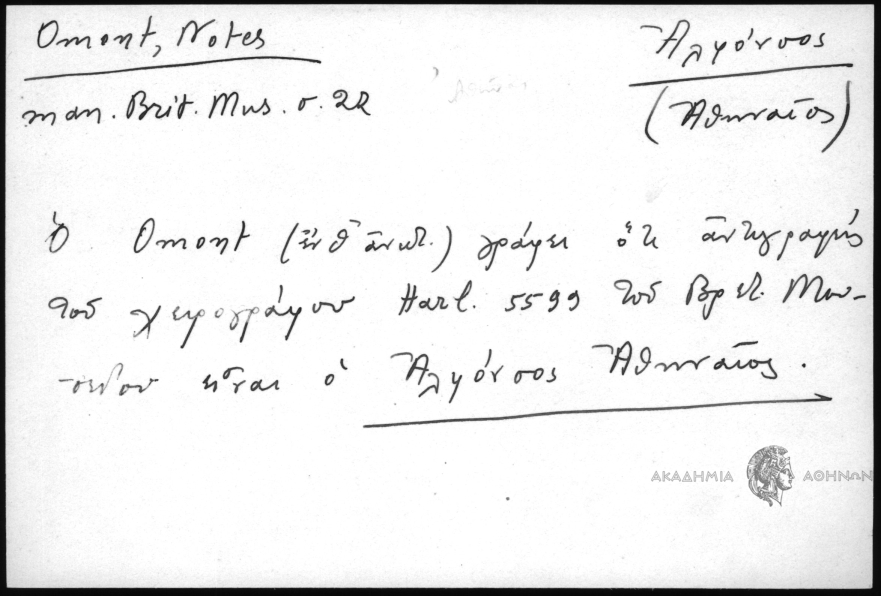 Omont, Notes
man. Brit. Mus. σ. 22
Ἀλφόνσος
(Ἀθηναῖος)
Ὁ Omont (ἔνθ' ἀνωτ.) γράφει ὅτι ἀντιγραφεὺς
τοῦ χειρογράφου Harl. 5599 τοῦ Βρετ. Μου-
σείου εἶναι ὁ Ἀλφόνσος Ἀθηναῖος.
ΑΚΑΔΗΜΙΑ ΑΘΗΝΩΝ